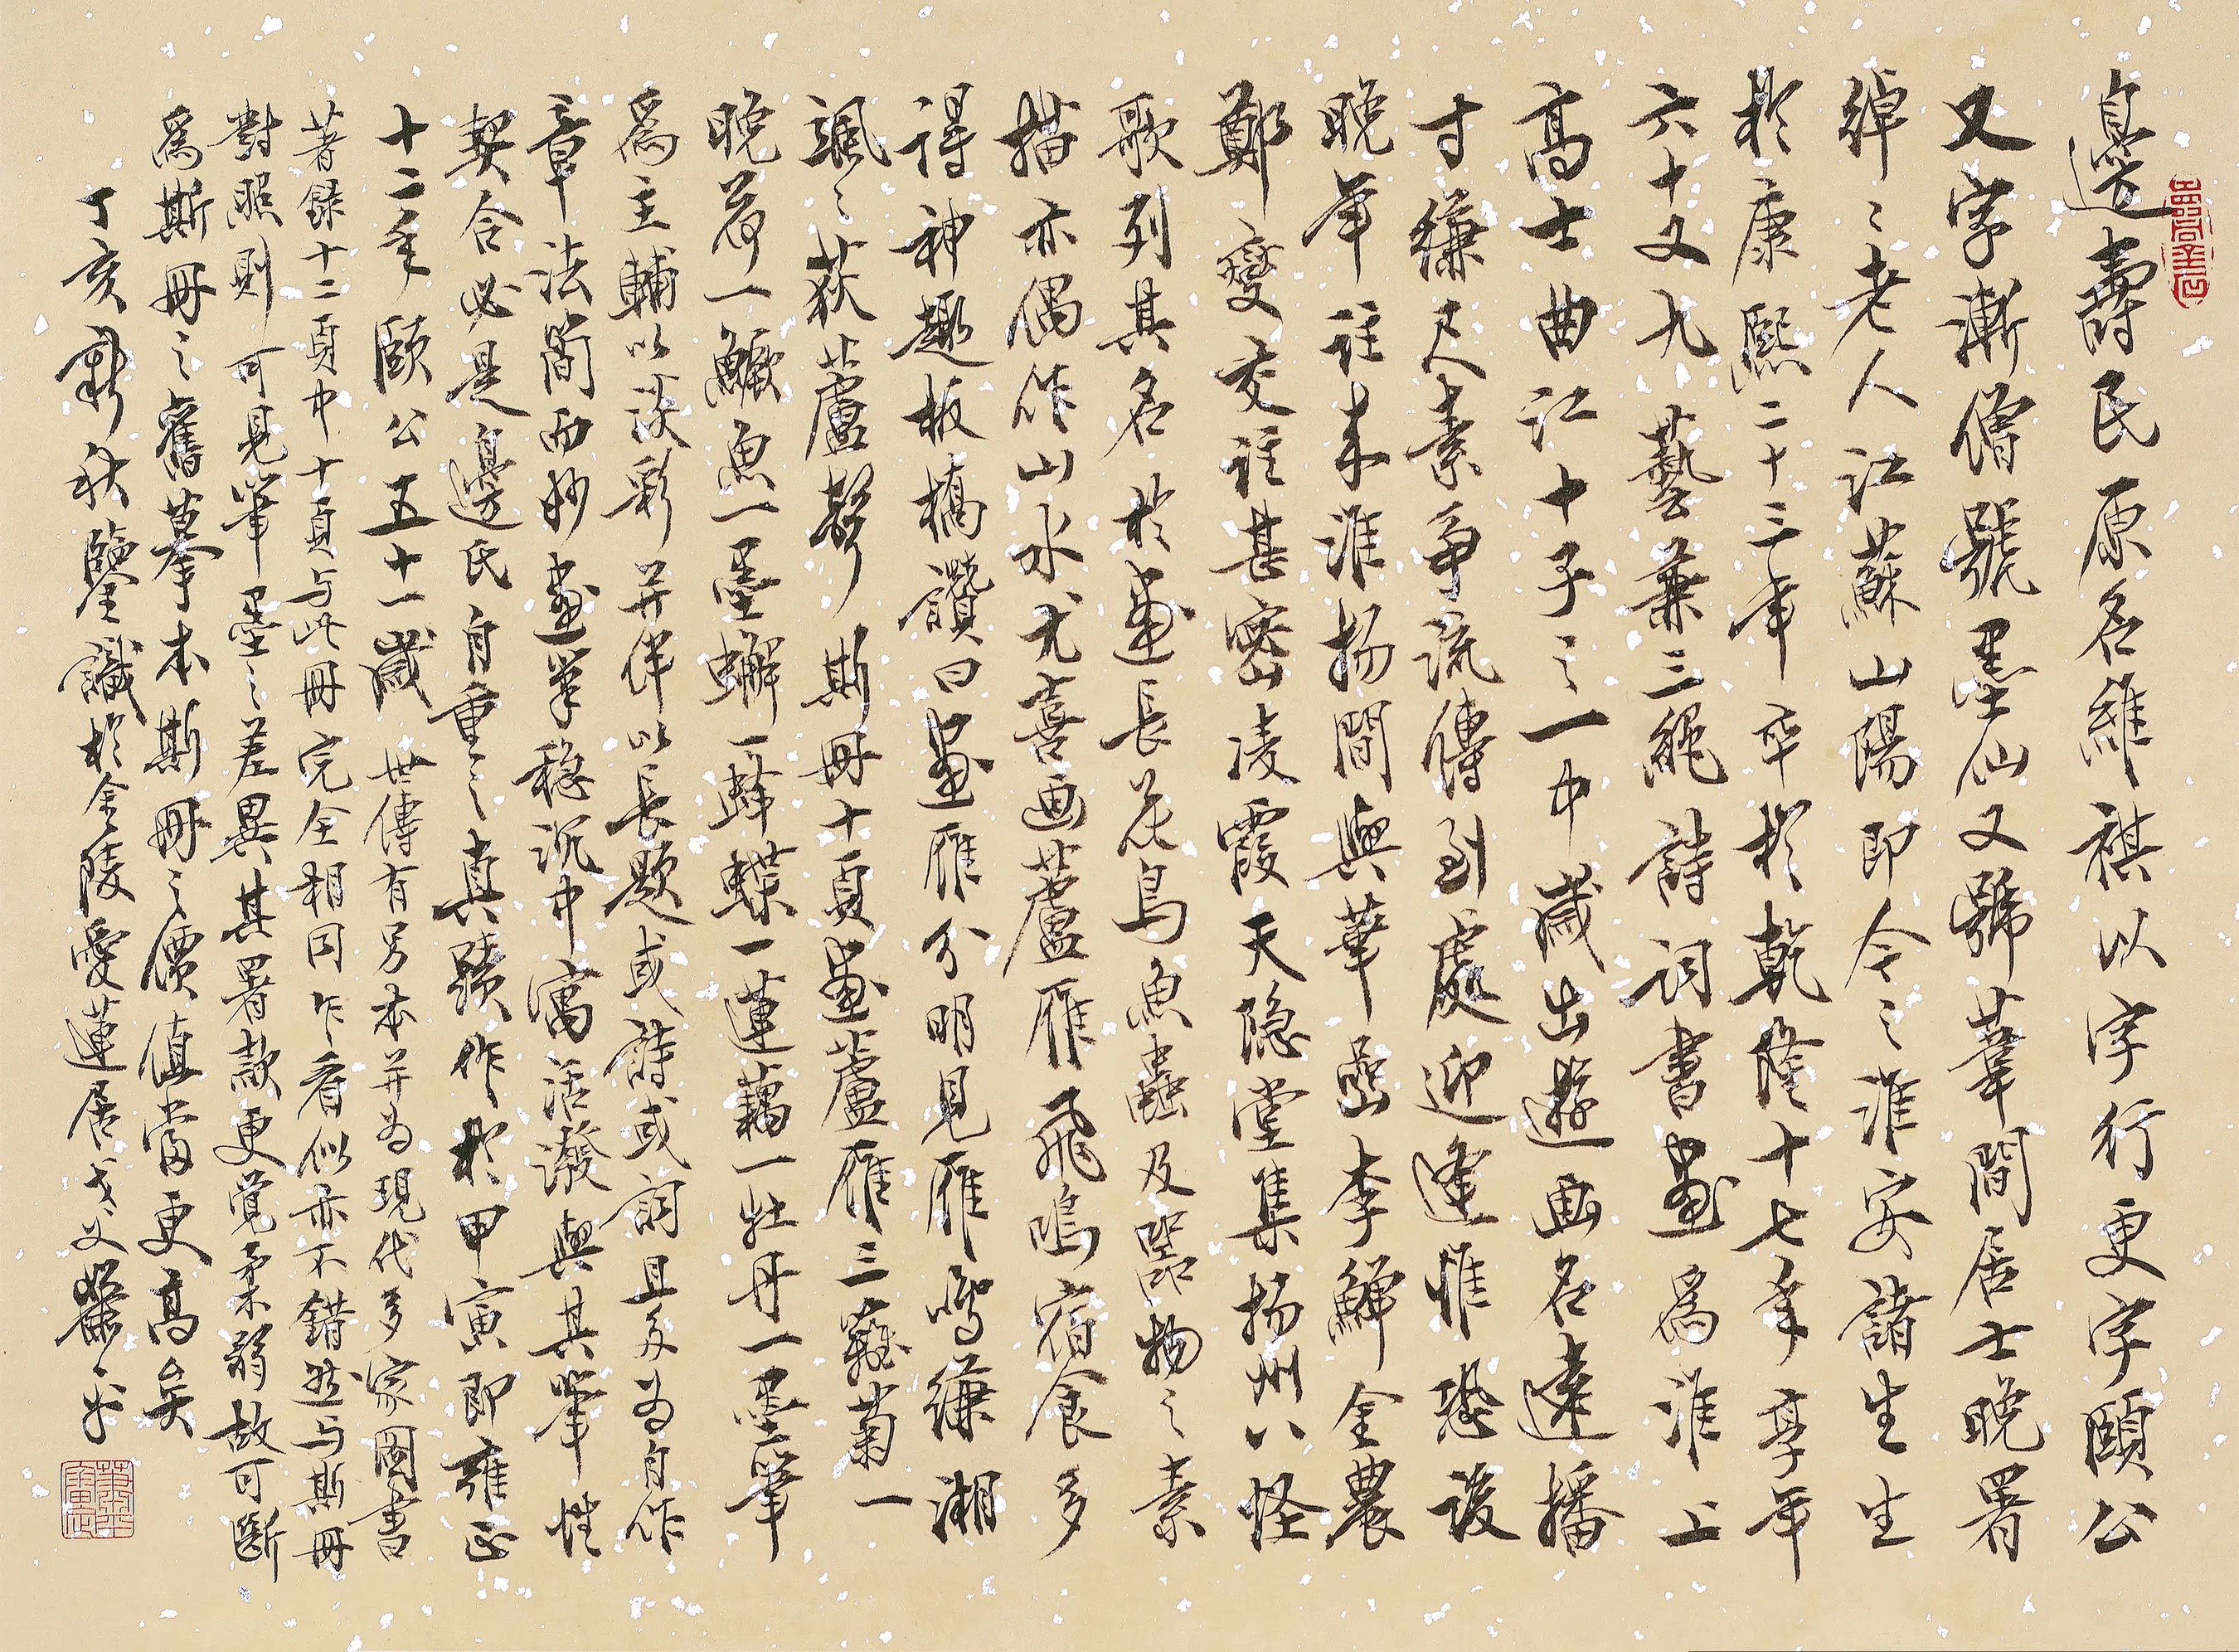 邊壽民原名維祺以字行更字頤公
又字漸僧號墨仙又號葦間居士晚署
綽綽老人江蘇山陽即今之淮安諸生生
於康熙二十三年卒於乾隆十七年享年
六十又九藝兼三絕詩詞書畫爲淮上
高士曲江十子之一中歲出遊画名遠播
寸縑尺素爭流傳到處迎逢惟恐後
晚年往來淮揚間與華嵒李鱓金農
鄭燮交往甚密凌霞天隐堂集揚州八怪
歌列其名於畫長花鳥魚蟲及器物之素
描亦偶作山水尤喜画蘆雁飛鳴宿食多
得神趣板橋讚曰畫雁分明見雁鳴縑湘
颯颯荻蘆聲斯冊十頁畫蘆雁三籬菊一
晚荷一鱖魚一墨蠏一蜂蝶一蓮藕一牡丹一墨筆
爲主輔以淡彩并伴以長題或詩或詞且多为自作
章法簡而妙畫筆穩沉中寓活潑與其筆性
契合必是邊氏自重之真蹟作於甲寅即雍正
十二年頤公五十一歲世傳有另本并为現代多家圖書
著録十二頁中十頁与此冊完全相同乍看似亦不錯然与斯冊
對照則可見筆墨之差異其署款更覺柔弱故可斷
爲斯冊之舊摹本斯冊之價值當更高矣
丁亥新秋鑒識於金陵愛蓮居